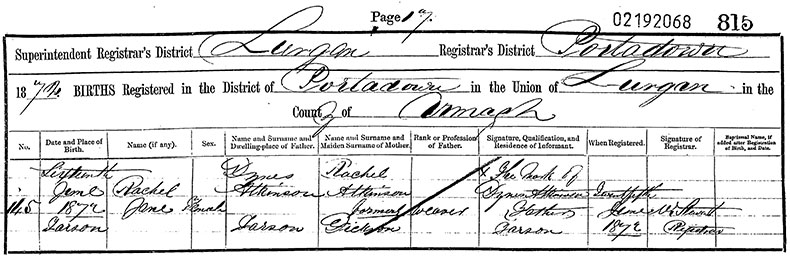 Page 17.
02192068 815
Superintendent Registrar's District Lurgan Registrar's District Portadown
1872 BIRTHS Registered in the District of Portadown in the Union of Lurgan in the
County of Armagh
No. Date and Place of Birth. Name (if any). Sex. Name and Surname and Dwelling-place of Father. Name and Surname and Maiden Surname of Mother. Rank or Profession of Father. Signature, Qualification, and Residence of Informant. When Registered. Signature of Registrar. Baptismal Name, if added after Registration of Birth, and Date.
145
June
1872
Rachel
Jane
Female
Dynes
Atkinson
Rachel
Atkinson
formerly
Dickson
Weaver
X The Mark of
Dynes Atkinson
Father
June
1872
Registrar